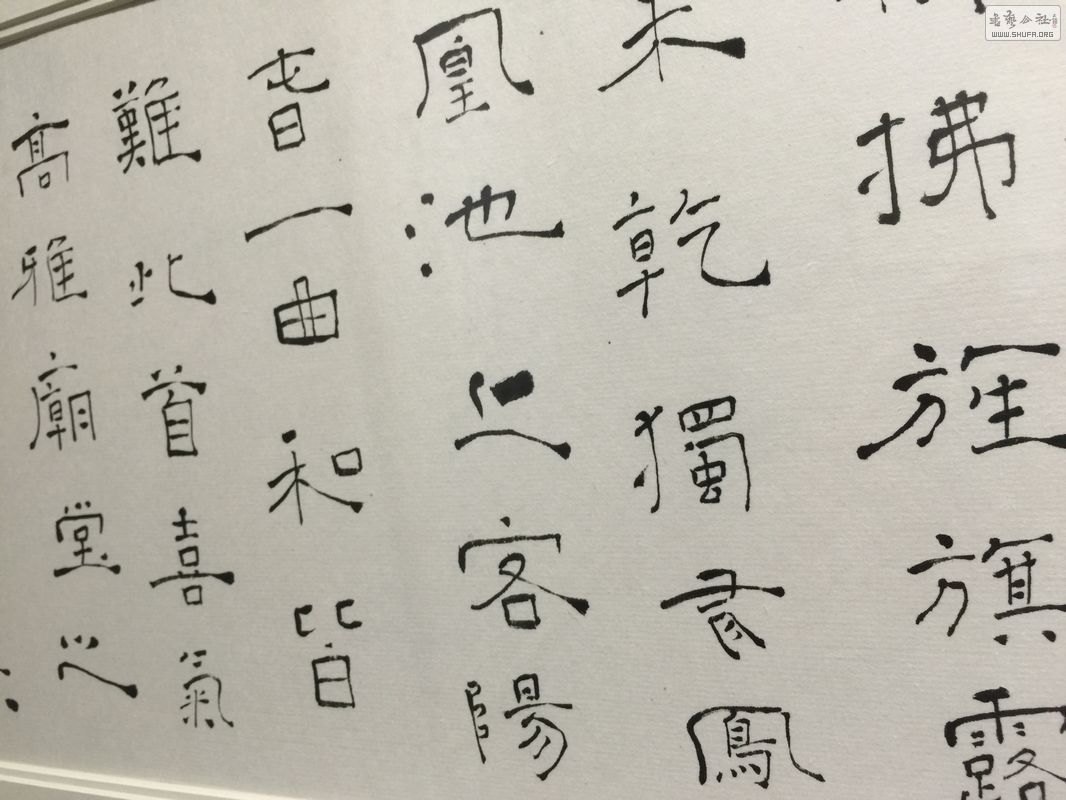 拂旌旗露
未乾獨有鳳
凰池上客陽
春一曲和皆
難此首喜氣
高雅廟堂之
書藝公社
WWW.SHUFA.ORG